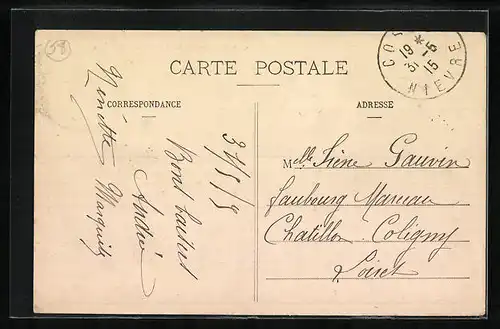 58
CARTE POSTALE
COS
19 * 15
31 - 5
15
NIEVRE
CORRESPONDANCE
ADRESSE
31/5/15
Bons baisers
André
Ninette Marquis
Melle Irène Gauvin
faubourg Marceau
Chatillon Coligny
Loiret